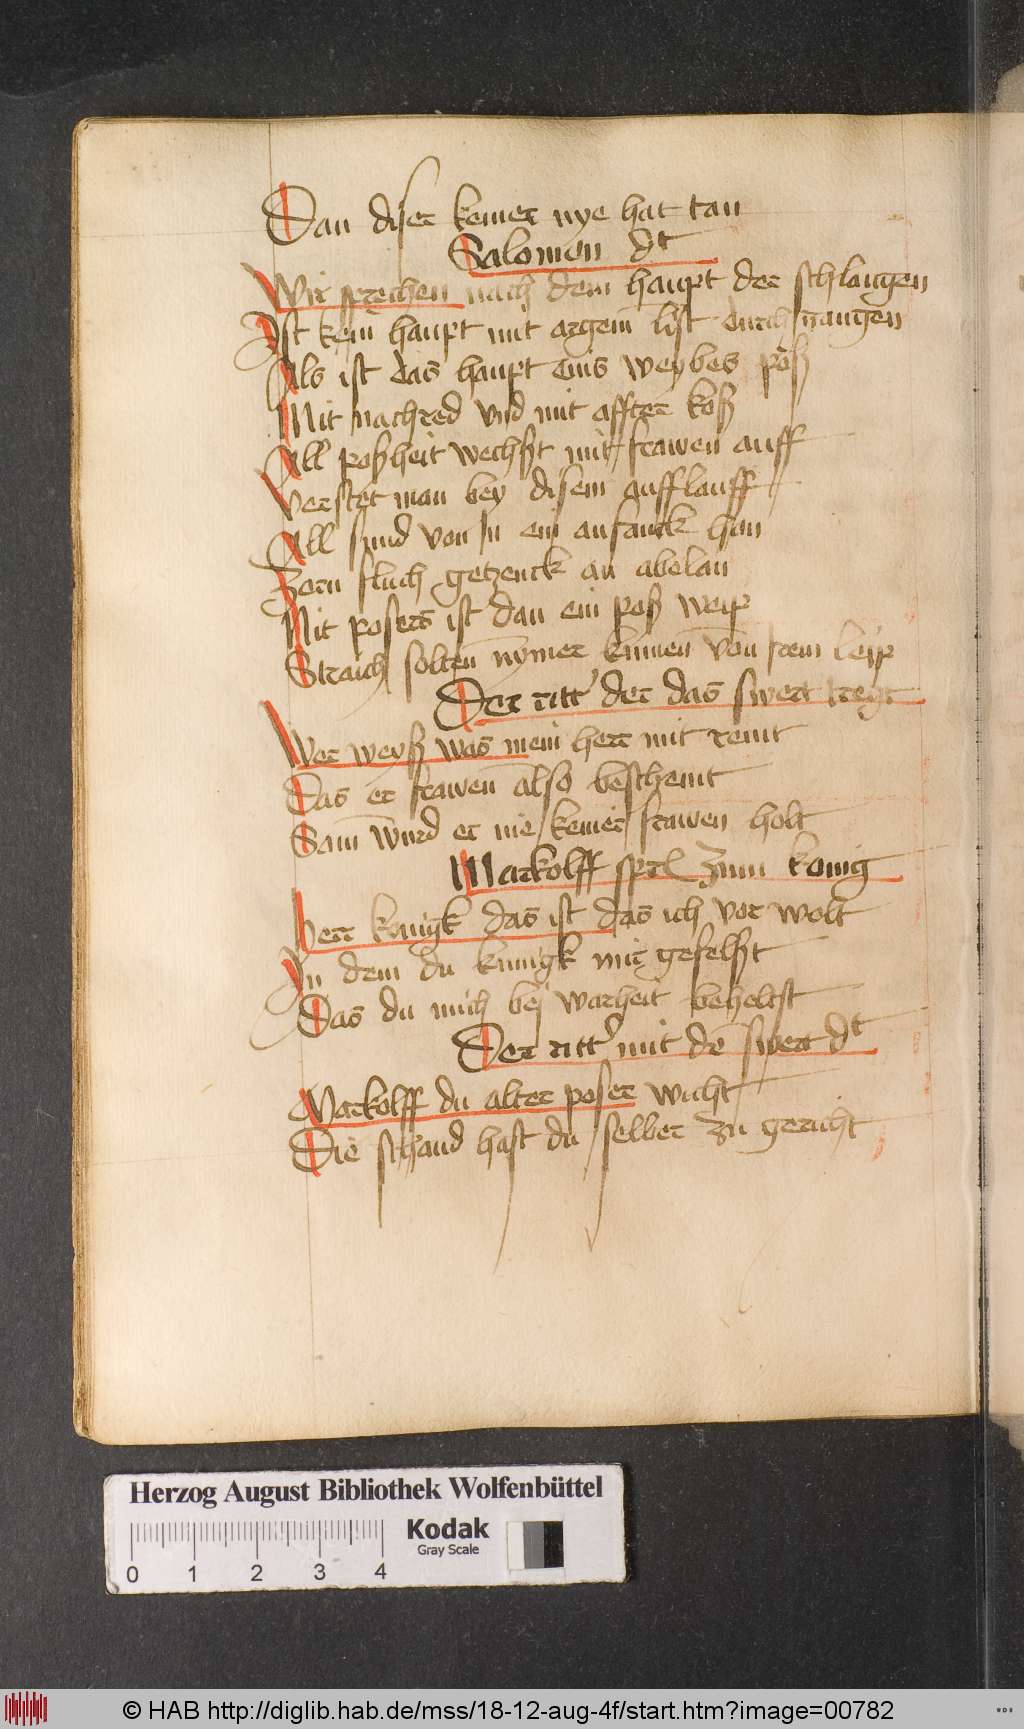 Dan diser keiner nye hat tan
Salomon dt
Wir sprechen nach dem haupt der schlangen
Ist kein haupt mit argem list durch
Als ist das haupt eins weybes poß
Mit nachred vnd mit affter koß
All poßheit wechßt mit frawen auff
Verstet man bey disem aufflauff
All sund von in ein anfanck han
Zorn fluch getzenck an abelan
Nit posers ist dan ein poß weip
Straich solten nymer kumen von irem leip
Der ritt' der das swert tregt
Wer weyß was mein herr mit remt
Das er frawen also beschemt
Sam wurd er nie keiner frawen holt
Markolff spricht zum konig
Herr konigk das ist das ich vor wolt
In dem du kunigk mir gefelßt
Das du mich bej warheit beheltst
Der ritt' mit dē swert dt
Markolff du alter poser wicht
Die schand hast du selber zu gericht
Herzog August Bibliothek Wolfenbüttel
Kodak
Gray Scale
0 1 2 3 4
© HAB http://diglib.hab.de/mss/18-12-aug-4f/start.htm?image=00782